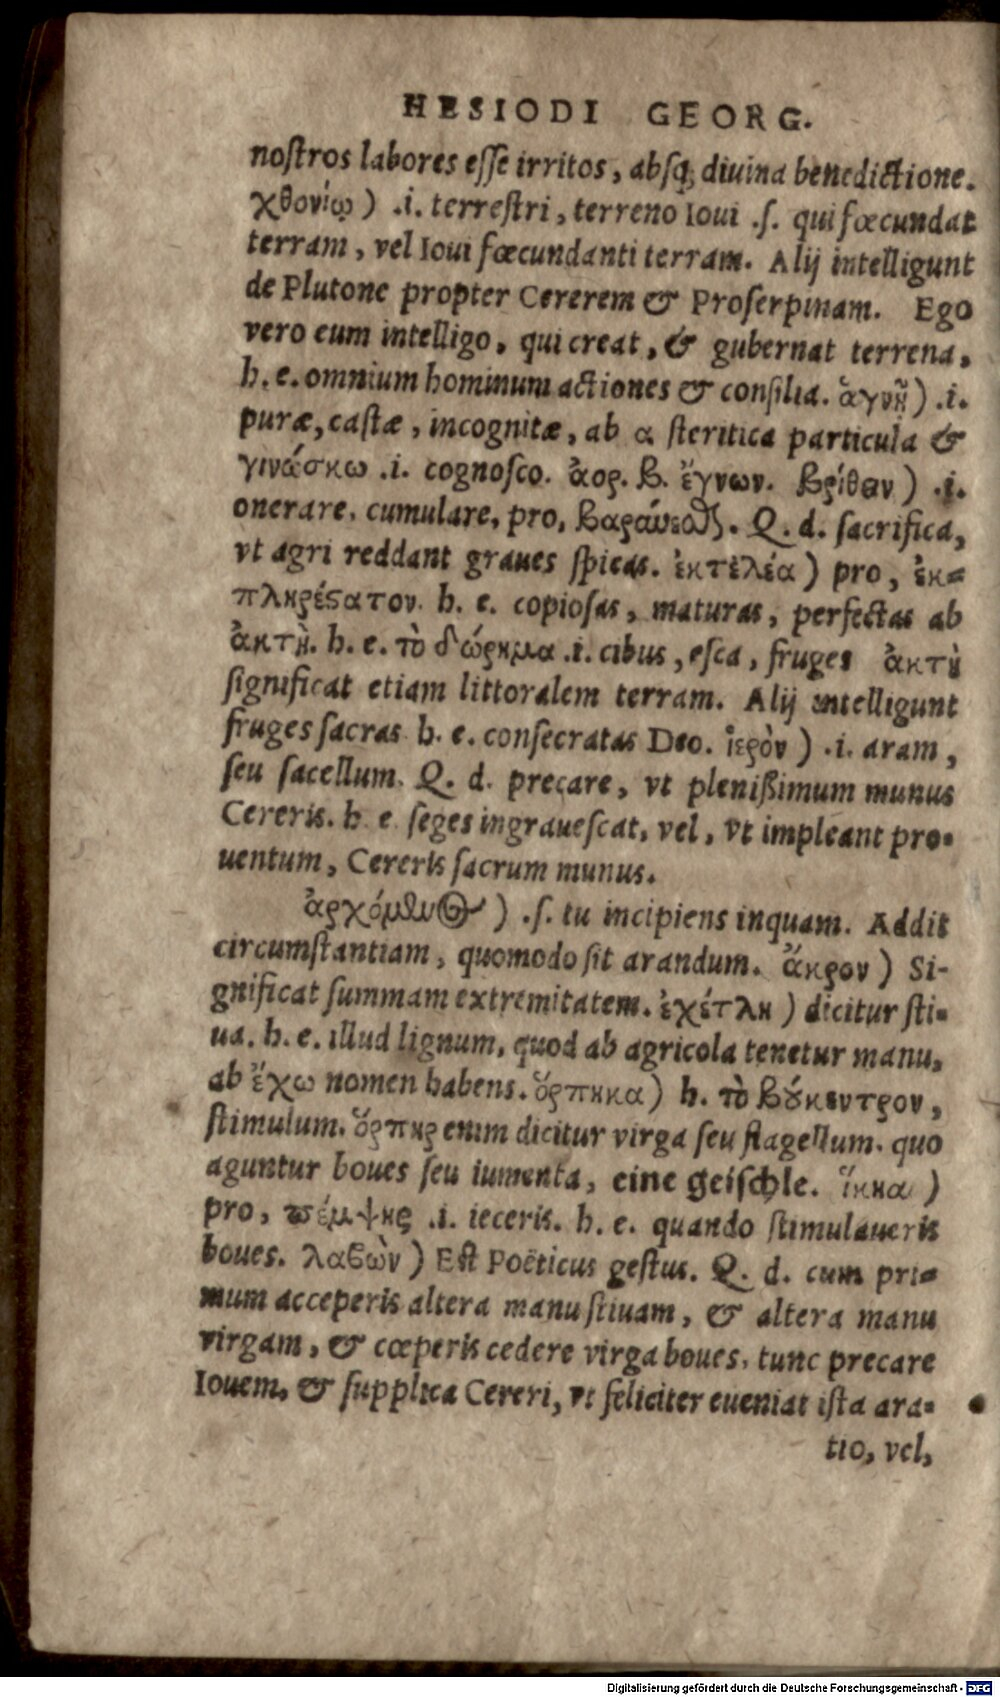 HESIODI GEORG.
nostros labores esse irritos, absq; diuina benedictione.
χθονίῳ) .i. terrestri, terreno Ioui .s. qui fœcundat
terram, vel Ioui fœcundanti terram. Alij intelligunt
de Plutone propter Cererem & Proserpinam. Ego
vero eum intelligo, qui creat, & gubernat terrena,
h. e. omnium hominum actiones & consilia. ἁγνῇ) .i.
puræ, castæ, incognitæ, ab α steritica particula &
γινώσκω .i. cognosco. ἀορ. β. ἔγνων. βρίθειν) .i.
onerare, cumulare, pro, βαρύνεσθαι. Q. d. sacrifica,
vt agri reddant graues spicas. ἐκτελέα) pro, ἐκ=
πληρέϛατον. h. e. copiosas, maturas, perfectas ab
ἀκτὴ. h. e. τὸ δώρημα .i. cibus, esca, fruges ἀκτὴ
significat etiam littoralem terram. Alij intelligunt
fruges sacras h. e. consecratas Deo. ἱερὸν) .i. aram,
seu sacellum. Q. d. precare, vt plenißimum munus
Cereris. h. e seges ingrauescat, vel, vt impleant pro=
uentum, Cereris sacrum munus.
ἀρχόμενος) .s. tu incipiens inquam. Addit
circumstantiam, quomodo sit arandum. ἄκρον) Si-
gnificat summam extremitatem. ἐχέτλη) dicitur sti=
ua. h. e. illud lignum, quod ab agricola tenetur manu,
ab ἔχω nomen habens. ὅρπηκα) h. τὸ βούκεντρον,
stimulum. ὅρπηξ enim dicitur virga seu flagellum. quo
aguntur boues seu iumenta, eine geischle. ἵκηαι)
pro, πέμψῃς .i. ieceris. h. e. quando stimulaueris
boues. λαβὼν) Est Poëticus gestus. Q. d. cum pri=
mum acceperis altera manu stiuam, & altera manu
virgam, & cœperis cedere virga boues, tunc precare
Iouem, & supplica Cereri, vt feliciter eueniat ista ara=
tio, vel,
Digitalisierung gefördert durch die Deutsche Forschungsgemeinschaft - DFG